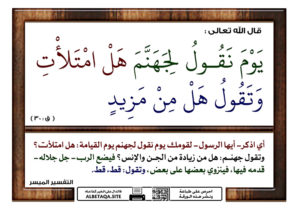 قال الله تعالى :
يَوْمَ نَقُولُ لِجَهَنَّمَ هَلْ امْتَلَأْتِ
وَتَقُولُ هَلْ مِنْ مَزِيدٍ
(ق:٣٠)
أي اذكر- أيها الرسول- لقومك يوم نقول لجهنم يوم القيامة: هل امتلأت؟
وتقول جهنم: هل من زيادة من الجن والإنس؟ فيضع الرب- جل جلاله-
قدمه فيها، فينزوي بعضها على بعض، وتقول: قط، قط.
التفسير الميسر
ALBETAQA.SITE